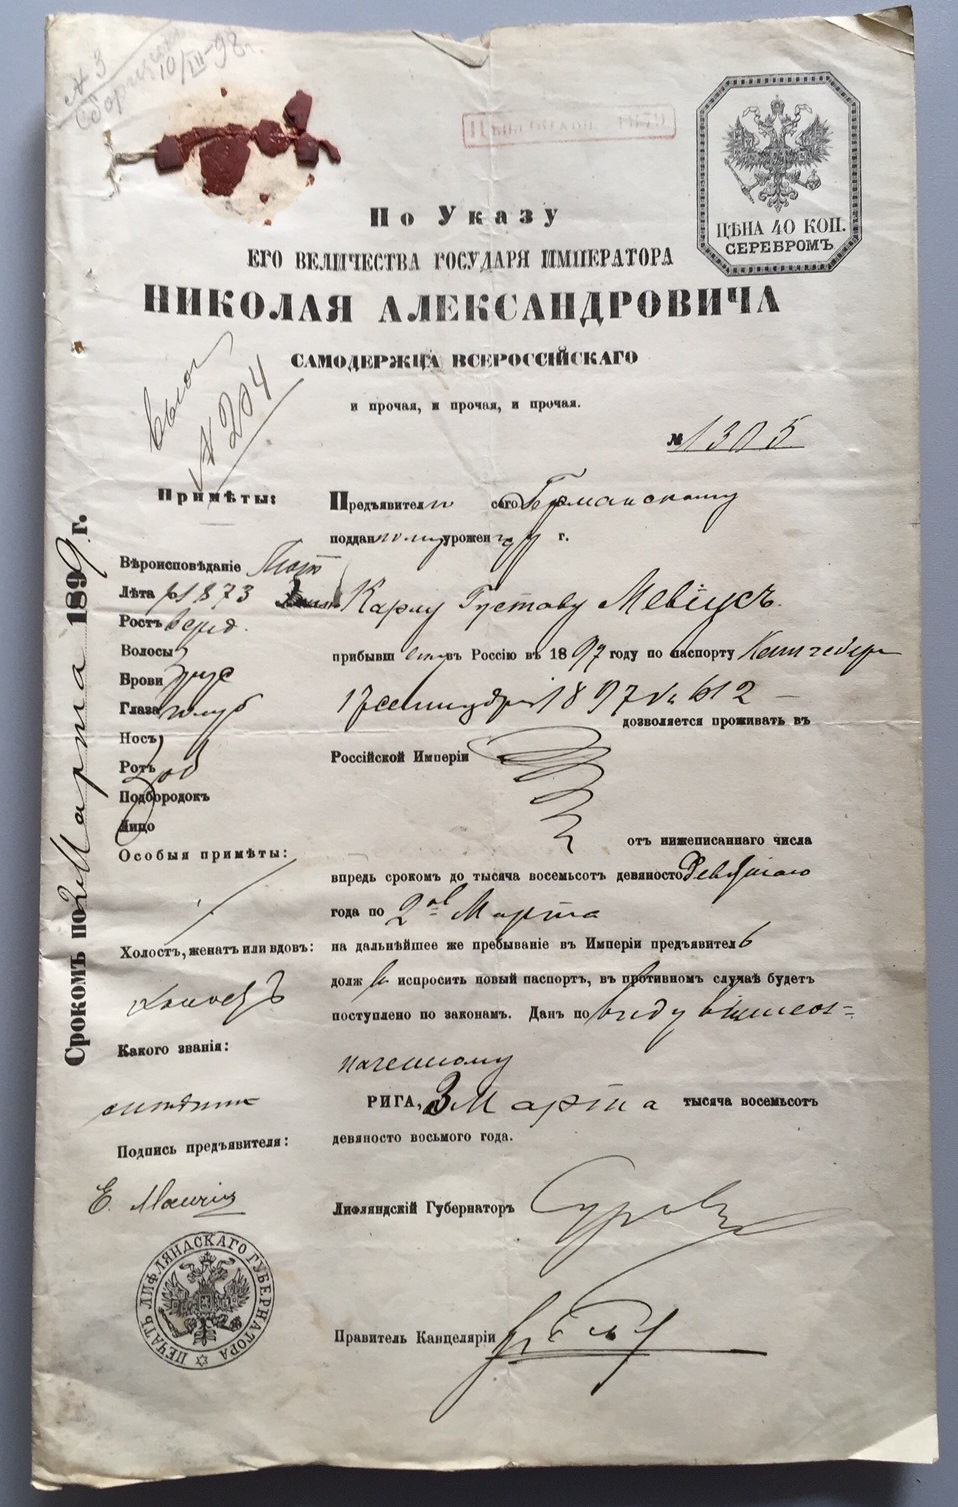 № 3
10/III-98 г.
ЦѢНА 40 КОП.
СЕРЕБРОМЪ
По Указу
ЕГО ВЕЛИЧЕСТВА ГОСУДАРЯ ИМПЕРАТОРА
НИКОЛАЯ АЛЕКСАНДРОВИЧА
САМОДЕРЖЦА ВСЕРОССІЙСКАГО
и прочая, и прочая, и прочая.
№ 204
№ 1305
Примѣты:
Предъявителю сего Германскому
подданному урожен г.
Вѣроисповѣданіе
Лѣта 1873
Карлу Густову Мевіусъ.
Ростъ сред.
Волосы
прибывш въ Россію въ 1897 году по паспорту
Брови рус
Глаза голуб
17 1897 № 612
дозволяется проживать въ
Носъ
Россійской Имперіи
Ротъ
Подбородокъ
Лицо
отъ нижеписаннаго числа
Особыя примѣты:
впредь срокомъ до тысяча восемьсотъ девяносто девятаго
года по 2ое Марта
Холостъ, женатъ или вдовъ: на дальнѣйшее же пребываніе въ Имперіи предъявитель
долж испросить новый паспортъ, въ противномъ случаѣ будетъ
холостъ
поступлено по законамъ. Данъ по виду вышеоз=
Какого званія:
наченному
РИГА, 3 Марта тысяча восемьсотъ
девяносто восьмого года.
Подпись предъявителя:
Лифляндскій Губернаторъ
ПЕЧАТЬ ЛИФЛЯНДСКАГО ГУБЕРНАТОРА
Правитель Канцеляріи
Срокомъ по 2 Марта 1899 г.